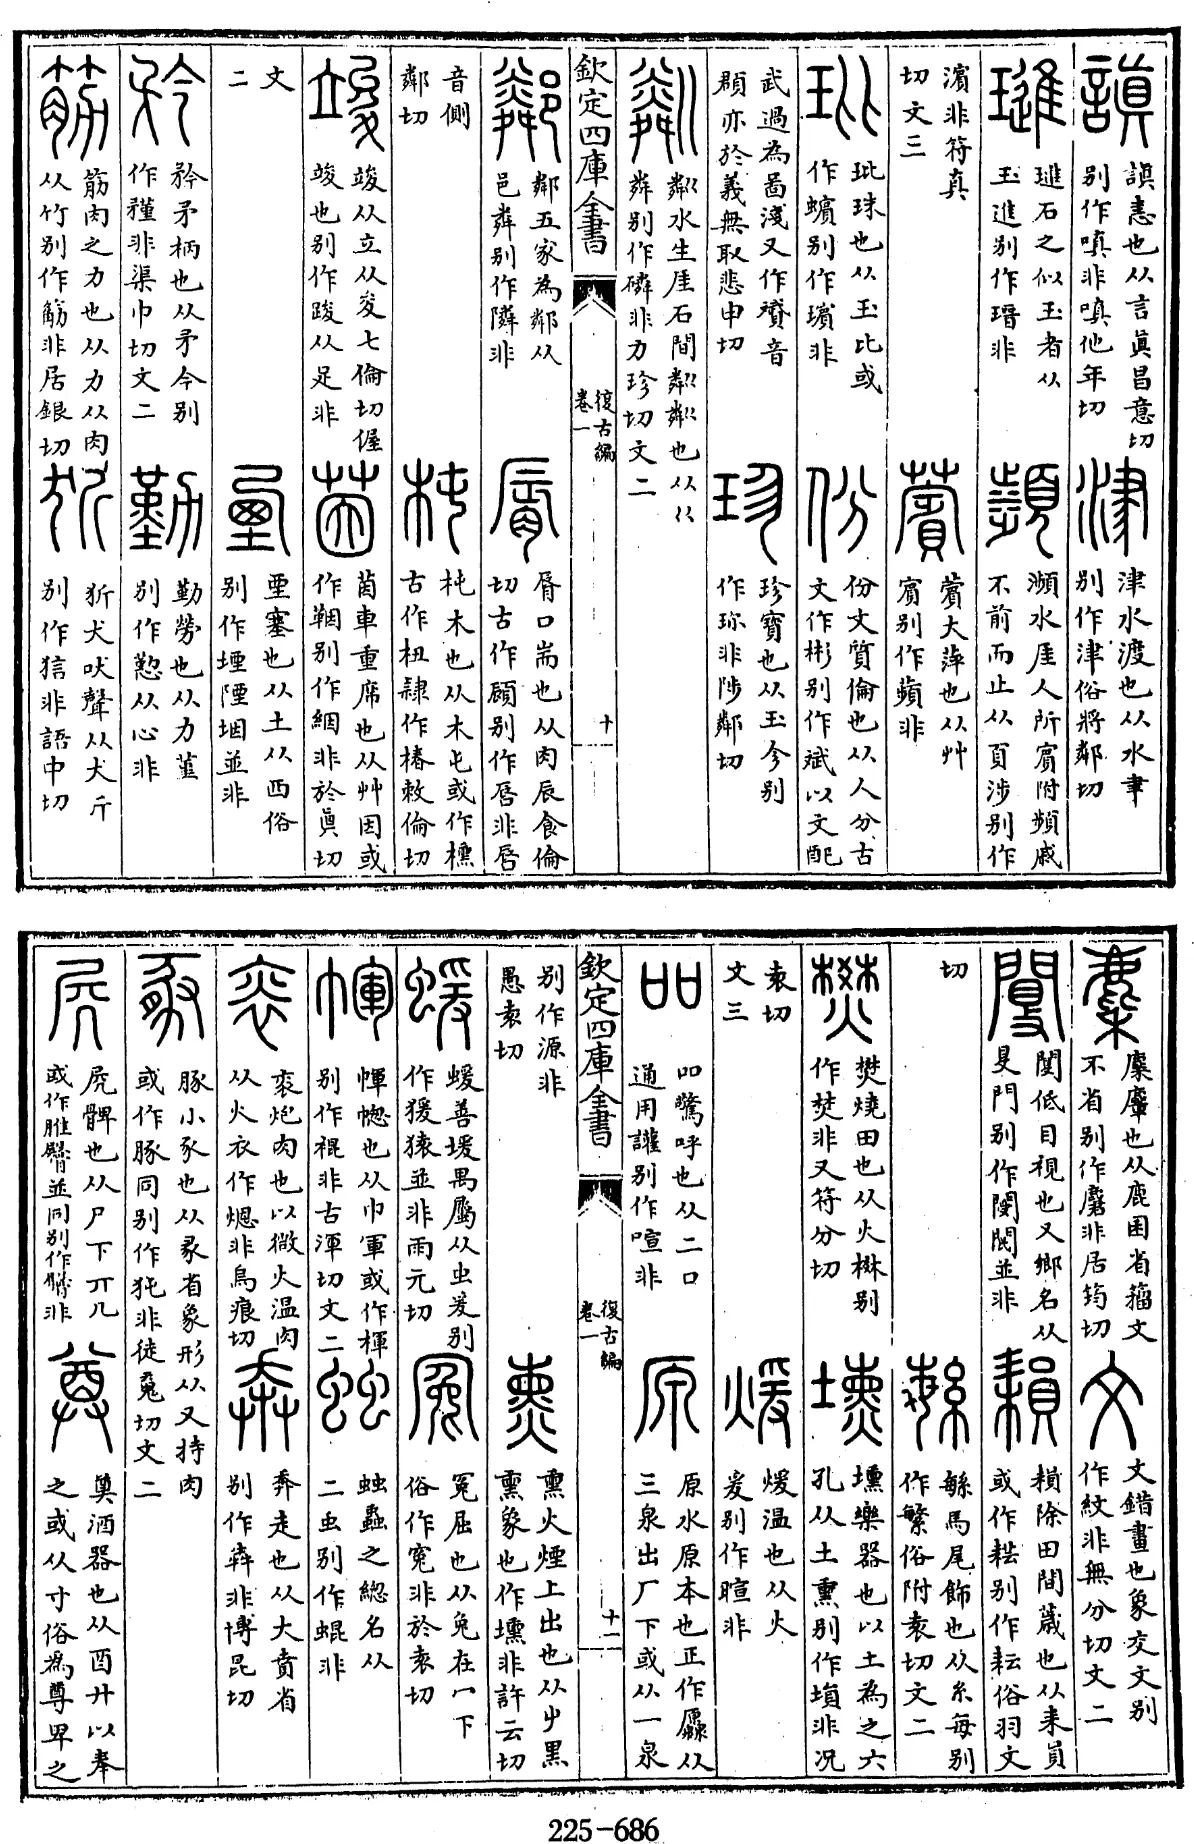 謓恚也从言真昌意切
別作嗔非嗔他年切
津水渡也从水𦘔
別作津俗將鄰切
璡石之似玉者从
玉進別作瑨非
瀕水厓人所賓附頻戚
不前而止从頁涉別作
濵非符真
切文三
薲大萍也从艸
賔別作蘋非
玭珠也从玉比或
作蠙別作璸非
份文質僃也从人分古
文作彬別作斌以文配
武過為鄙淺又作贇音
頵亦於義無取悲申切
珍寶也从玉㐱別
作珎非陟鄰切
粼水生厓石間粼粼也从巜
粦別作磷非力珍切文二
欽定四庫全書
復古編
卷一
十
鄰五家為鄰从
邑粦別作隣非
脣口耑也从肉辰食倫
切古作顧別作唇非唇
音側
鄰切
杶木也从木屯或作櫄
古作杻隸作椿敕倫切
竣从立从夋七倫切偓
竣也別作踆从足非
茵車重席也从艸因或
作鞇別作絪非於真切
文
二
垔塞也从土从西俗
別作堙陻堌並非
矜矛柄也从矛今別
作矝非渠巾切文二
勤勞也从力堇
別作懃从心非
筋肉之力也从力从肉
从竹別作觔非居銀切
狋犬吠聲从犬斤
別作狺非語中切
麇麞也从鹿囷省籀文
不省別作麏非居筠切
文錯畫也象交文別
作紋非無分切文二
閺低目視也又鄉名从
門別作閿並非
䫟除田間薉也从耒員
或作耘別作耘俗羽文
切
緐馬尾飾也从糸每別
作繁俗附袁切文二
樊燒田也从火棥別
作焚非又符分切
壎樂器也以土為之六
孔从土熏別作塤非况
袁切
文三
煖温也从火
爰別作暄非
吅驚呼也从二口
通用讙別作喧非
原水原本也正作厵从
三泉出厂下或从一泉
欽定四庫全書
復古編
卷一
十一
別作源非
愚袁切
熏火煙上出也从屮黑
熏象也作壎非許云切
蝯善援禺屬从虫爰別
作猨猿並非雨元切
冤屈也从兔在冖下
俗作寃非於袁切
幝幒也从巾軍或作褌
別作裩非古渾切文二
䖵蟲之緫名从
二虫別作蜫非
衮炮肉也以微火温肉
从火衣作煾非烏痕切
奔走也从大賁省
別作犇非博昆切
豚小豕也从彖省象形从又持肉
或作豚同別作㹠非徒䰟切文二
𡱂髀也从尸下丌几
或作脽臀並同別作臋非
尊酒器也从酉廾以奉
之或从寸俗為尊卑之
225-686